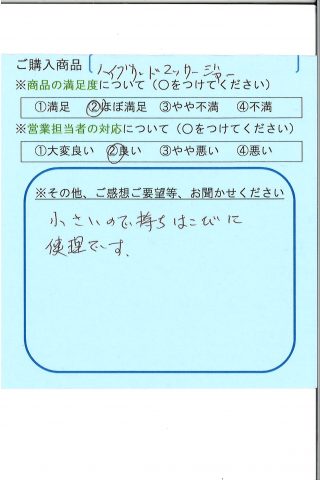 ご購入商品 ハイブリッドマッサージャー
※商品の満足度について（〇をつけてください）
①満足 ②ほぼ満足 ③やや不満 ④不満
※営業担当者の対応について（〇をつけてください）
①大変良い ②良い ③やや悪い ④悪い
※その他、ご感想ご要望等、お聞かせください
小さいので持ちはこびに
便理です。